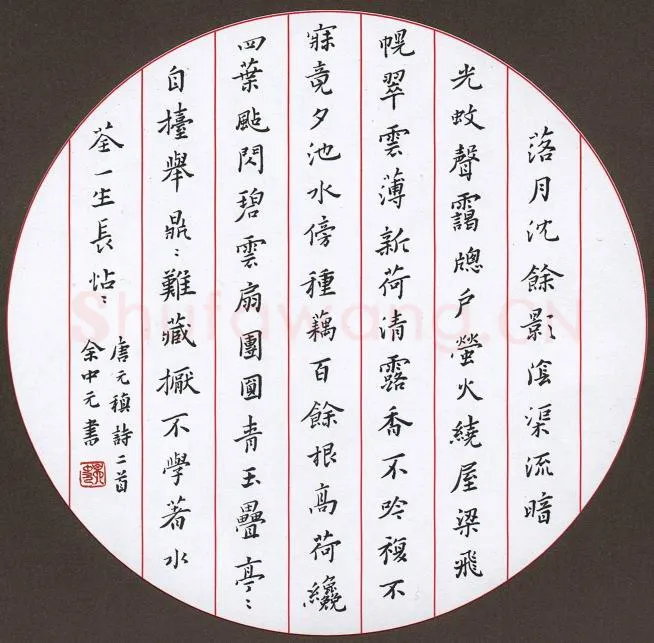 落月沈餘影陰渠流暗
光蚊聲靄牕戶螢火繞屋梁飛
幌翠雲薄新荷清露香不吟複不
寐竟夕池水傍種藕百餘根高荷纔
四葉颭閃碧雲扇團圓青玉疊亭〻
自擡舉鼎〻難藏擫不學著水
荃一生長怗〻
唐元稹詩二首
余中元書
Shufawang.CN